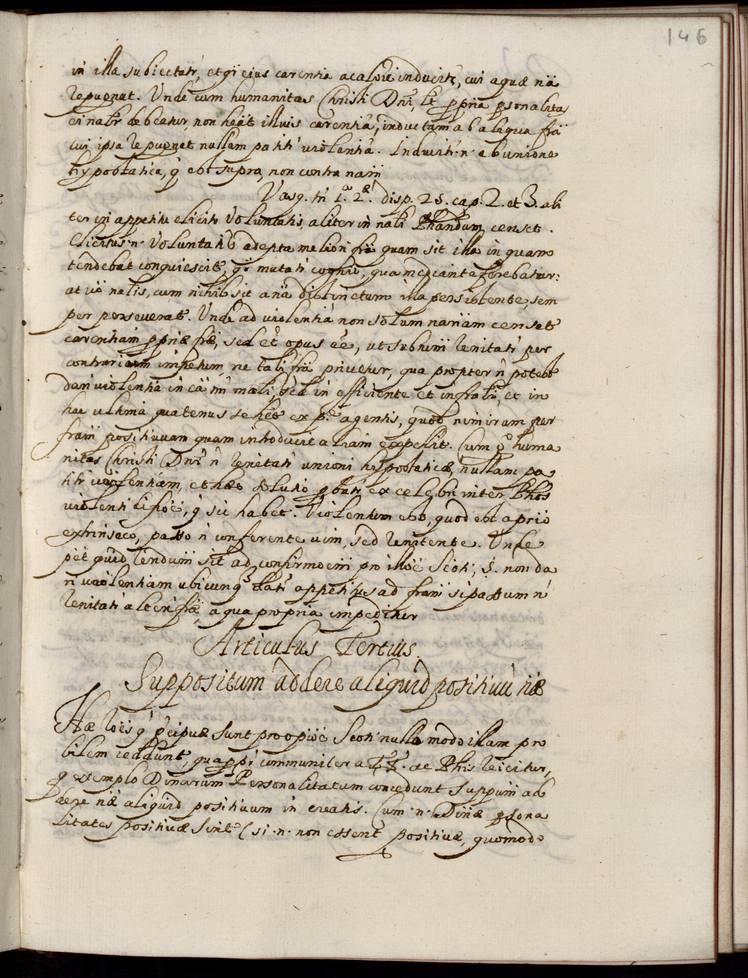 146
in illa subiectati, et qi eius carentia a calore inducitr, cui aquæ nā
repugnat. Unde cum humanitas Christi Dni, lt ppria psonalitas
ei nalr debeatur, non heāt illius carentiā, inductam ab aliqua frā
cui ipsa repugnet nullam patit violentiā. Inducit .n. ab unione
hypostatica, q est supra, non contra nam
Vasq. tn 1.ª 2.ª disp. 25. cap. 2. et 3. ali
ter in appetitu elicito Voluntatis, aliter in nali Phandum censet.
Elicitus .n. Voluntatis adepta meliori frā quam sit illa in quam
tendebat conquiescit, qi mutat cognio, qua mediante ferebatur:
at vō nalis, cum nihil sit a nā distinctum illa persistente, sem
per perseverat. Unde ad violentiā non solum nariam censet
carentiam ppriæ fræ, sed et opus ēe, ut subium renitati per
contrarium impetum, ne tali frā privetur, qua propter n potest
dari violentia in cā mæli, sed in efficiente et in frali, et in
hac ultima quatenus se het ex pe agentis, quod nimirum per
fram positivam quam introducit aliam expellit. Cum g huma
nitas Christi Dni n renitati unioni hypostaticæ nullam pa
tit violentiam, et hæc solutio ex celebri inter Phos
violenti difioē, q sic habet. Violentum est, quod est a prio
extrinseco, passo n conferente vim, sed renitente. Unde
pet quid dicendum sit ad confirmoem pro illoē Scoti; s. non da
ri violentiam ubicunq dati appetitus ad fram si passum n
renitati alteri fræ a qua propria impeditur
Articulus Tertius.
Suppositum addere aliquid positivū næ
Hæ loēs q pcipuæ sunt pro opioē Scoti nullo modo illam pro
bilem reddunt, quappi communiter a TT. ac Phis reicitur,
q exemplo Dinarum Personalitatum concedunt suppūm ad
dere næ aliquid positivum in creatis. Cum .n. Dinæ psona
litates positivæ sint (si .n. non essent positivæ, quomodo